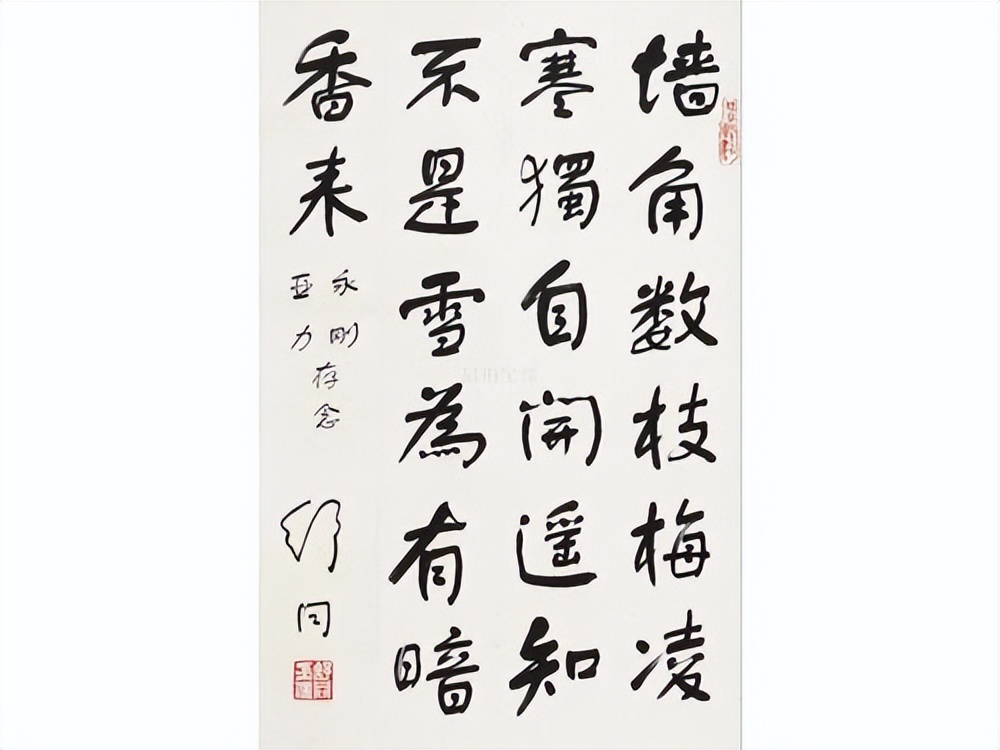 墙角数枝梅凌
寒獨自開遥知
不是雪為有暗
香来
永刚
亚力
存念
舒同